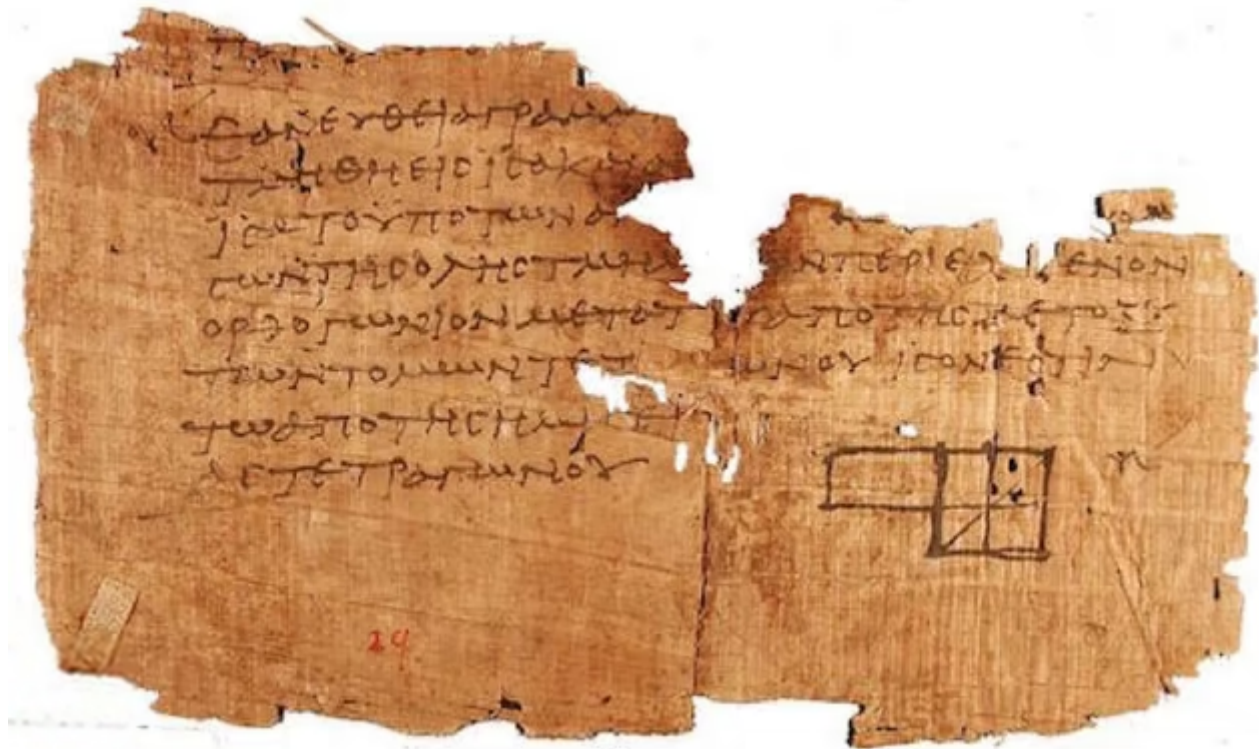 ΕΑΝΕΥΘΕΙΑΓΡΑΜΜ
ΤΜΗΘΗΕΙϹΙϹΑΚΑΙ
ΙϹΑΤΟΥΠΟΤΩΝΑ
ϹΩΝΤΗϹΟΛΗϹΤΜΗΜ ΩΝΠΕΡΙΕΧ ΜΕΝΟΝ
ΟΡΘΟΓΩΝΙΟΝΜΕΤΑΤ ΥΑΠΟΤΗϹΜΕΤΟΞΥ
ΤΩΝΤΟΜΩΝΤΕΤ ΩΝΟΥΙϹΟΝΕϹΤΙΝ
ΤΩΑΠΟΤΗϹΗΜΙ ΕΙ
ΑϹΤΕΤΡΑΓΩΝΟΥ
29